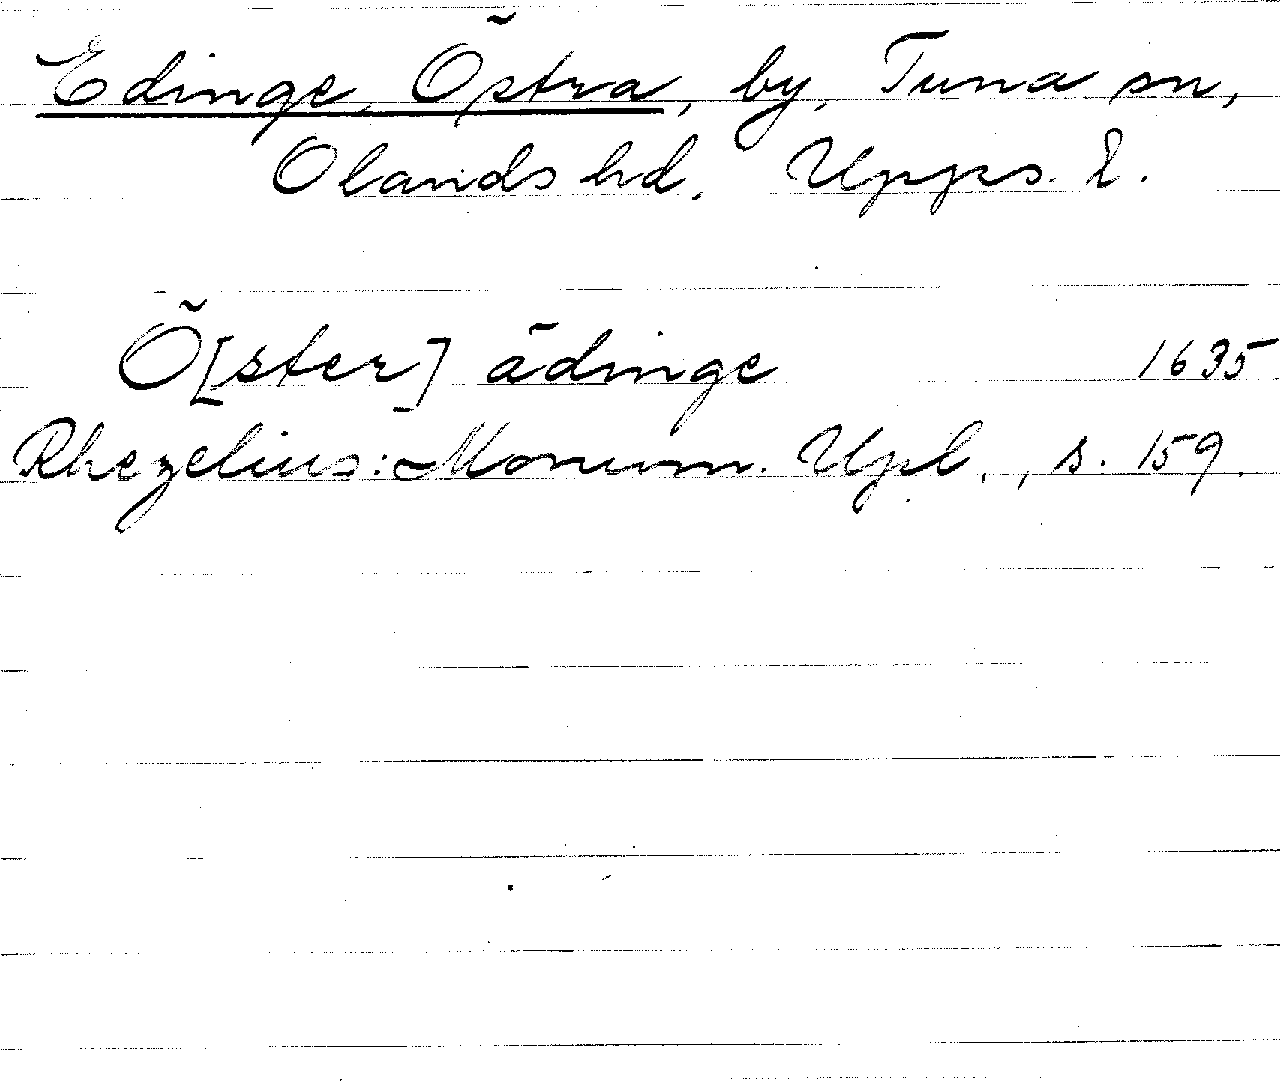 Edinge, Östra, by, Tuna sn,
Olands hd, Upps. l.
Ö[ster] ädinge 1635
Rhezelius: Monum. Upl., s. 159.